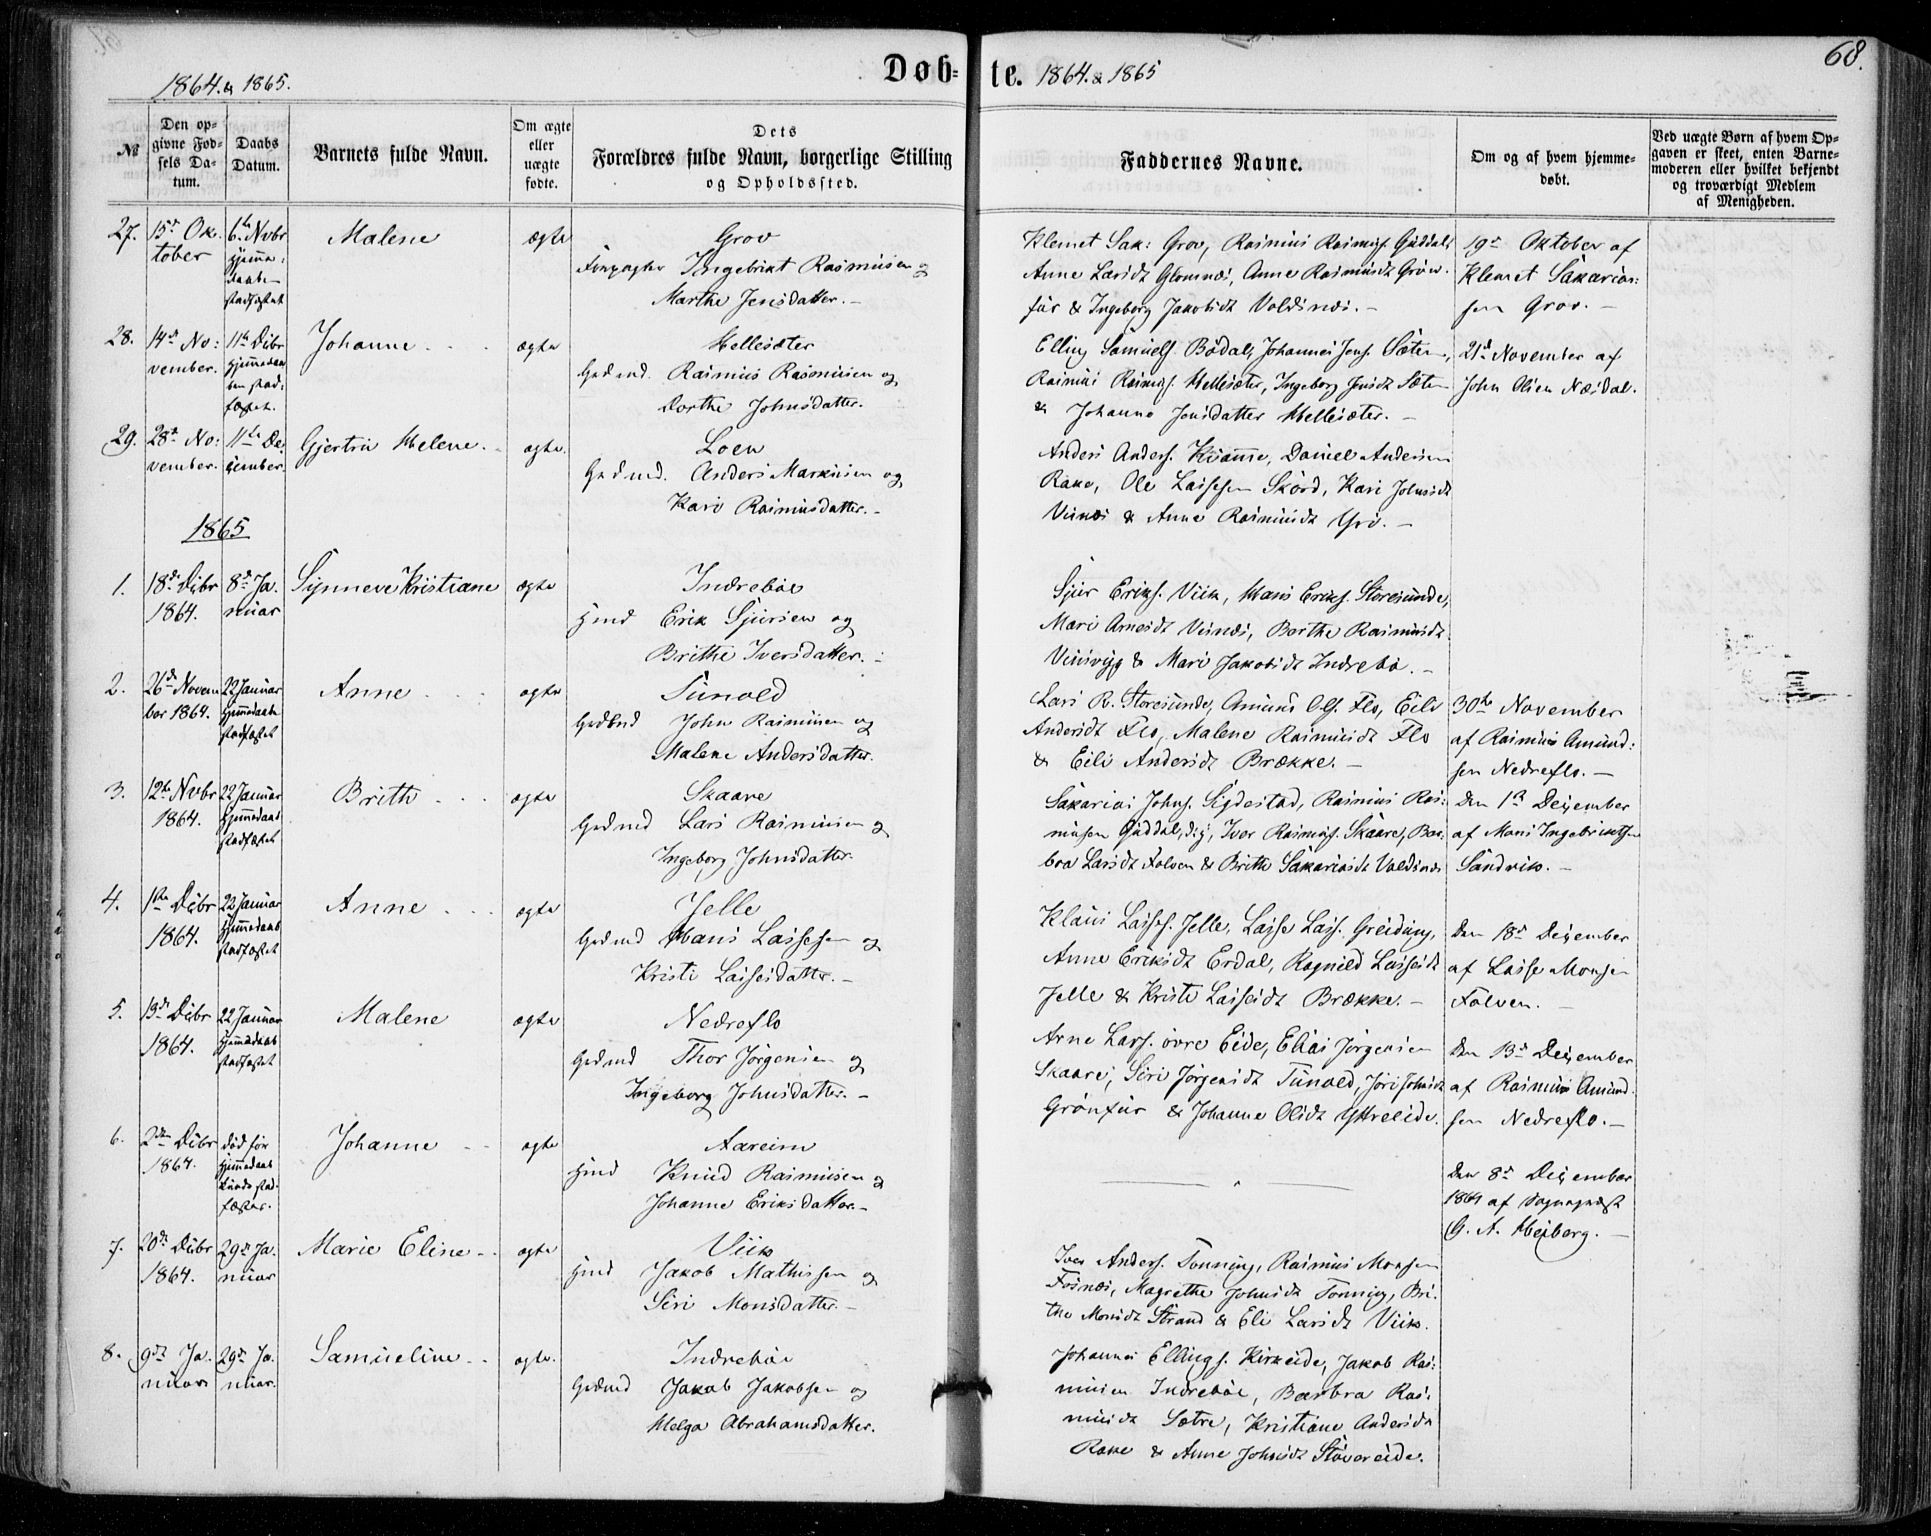 68.
Døb-te.
1864. & 1865.
1864. & 1865
№
Den op-
givne Fød-
sels Da-
tum.
Daabs
Datum.
Barnets fulde Navn.
Om ægte
eller
uægte
fødte.
Dets
Forældres fulde Navn, borgerlige Stilling
og Opholdssted.
Faddernes Navne.
Om og af hvem hjemme-
døbt.
Ved uægte Børn af hvem Op-
gaven er skeet, enten Barne-
moderen eller hvilket bekjendt
og troværdigt Medlem
af Menigheden.
27.
15de Ok-
tober
6te Nvbr
hjemme-
daab
stadfæstet
Malene
ægte
Grov
Ingebrikt Rasmusen og
Marthe Jensdatter.-
Klemet Sak: Grov, Rasmus Rasmss. Guddal,
Anne Larsdt Glomnæs, Anne Rasmusdt Grøn-
fur & Ingeborg Jakobsdt Valdsnæs.-
19de Oktober af
Klemet Sakarias-
sen Grov.-
28.
14de No-
vember.
11te Dcbr
hjemmedaa-
ben stad-
fæstet.
Johanne
ægte
Hellesæter
Gbdmd. Rasmus Rasmusen og
Dorthe Johnsdatter.
Elling Samuels. Bødal, Johannes Jens. Sæten,
Rasmus Rasmss. Hellesæter, Ingeborg Jensdt Sæten
& Johanne Jensdatter Hellesæter.-
21de November af
John Olsen Næsdal.
29.
28de No-
vember.
11te De-
cember.
Gjertru Helene.
ægte.
Loen
Gbdmd. Anders Markusen og
Kari Rasmusdatter.-
Anders Anders. Kvamme, Daniel Andersen
Rake, Ole Lassesen Skård, Kari Johnsdt
Visnæs & Anne Rasmusdt Yri.-
1865
1.
18de Dcbr
1864.
8de Ja-
nuar
Synneve Kristiane
ægte
Indrebøe
Hmd Erik Sjursen og
Brithe Iversdatter.-
Sjur Eriks. Viik, Hans Eriks. Storesunde,
Mari Arnesdt Visnæs, Berthe Rasmusdt
Visnvig & Mari Jakobsdt Indrebø.-
2.
26de Novem
ber 1864.
22 Januar
hjemmedaab
stadfæstet
Anne
ægte
Tunold
Gbdmd John Rasmusen og
Malene Andersdatter.
Lars R. Storesunde, Amund Ols. Flo, Eili
Andersdt Flo, Malene Rasmusdt Flo
& Eili Andersdt Brække.-
30te November
af Rasmus Amund-
sen Nedreflo.-
3.
12te Nvbr
1864.
22 Januar
hjemmedaab
stadfæstet
Brith
ægte
Skaare
Gbdmd Lars Rasmusen og
Ingeborg Johnsdatter.
Sakarias Johns. Sigdestad, Rasmus Ras-
musen Guddal, Iver Rasmss. Skaare, Bar-
bra Larsdt Folven & Brith Sakariasdt Valdsnæs
Den 1ste December
af Mons Ingebriktsen
Sandvik.-
4.
1ste Dcbr
1864.
22 Januar
hjemmedaab
stadfæstet
Anne
ægte
Jelle
Gbdmd Hans Lassesen og
Kristi Lassesdatter.-
Klaus Lasses. Jelle, Lasse Lass. Greiding,
Anne Eriksdt Erdal, Ragnild Lassesdt
Jelle & Kristi Lassesdt Brække.-
Den 18de December
af Lasse Monsen
Folven.-
5.
13de Dcbr
1864.
22 Januar
hjemmedaab
stadfæstet
Malene
ægte
Nedreflo
Gbdmd Thor Jørgensen og
Ingeborg Johnsdatter.-
Arne Lars. øvre Eide, Elias Jørgensen
Skaare, Siri Jørgensdt Tunold, Jori Johnsdt
Grønfur & Johanne Olsdt Yttreeide.
Den 13de December
af Rasmus Amund-
sen Nedreflo.-
6.
2den Dcbr
1864.
død før
hjemmedaab
kunde stad-
fæstes.
Johanne
ægte
Aareim
Hmd Knud Rasmusen og
Johanne Eriksdatter.-
Den 8de December
1864 af Sogneprest
G. A. Heiberg.-
7.
20de Dcbr
1864.
29de Ja-
nuar
Marie Eline
ægte
Viik
Hmd Jakob Mathissen og
Siri Monsdatter.-
Iver Anders. Tonning, Rasmus Monsen
Fosnæs, Magrethe Johnsdt Tonning, Bri-
the Monsdt Strand & Eli Larsdt Viik.
8.
9de Ja-
nuar
29de Ja-
nuar.
Samueline
ægte.
Indrebøe
Gbdmd Jakob Jakobsen og
Helga Abrahamsdatter.
Johannes Ellings. Kirkeide, Jakob Ras-
musen Indrebøe, Barbra Ras-
musdt Sætre, Kristiane Andersdt
Rake & Anne Johnsdt Støvereide.